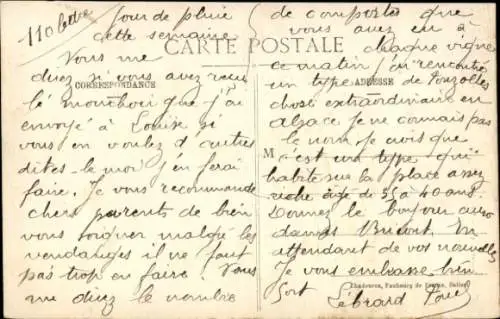 110 lettre
jour de pluie
cette semaine
CARTE POSTALE
CORRESPONDANCE
Vous me
direz si vous avez reçu
le mouchoir que j'ai
envoyé à Louise si
vous en voulez d'autres
dites le moi j'en ferai
faire. Je vous recommande
chers parents de bien
vous soigner malgré les
vendanges il ne faut
pas trop en faire. Vous
me direz le nombre
de comportes que
vous avez eu à
chaque vigne
ce matin j'ai rencontré
ADRESSE
un type de Pouzolles
chose extraordinaire en
alsace je ne connais pas
le nom je crois que
M
c'est un type qui
habite sur la place assez
riche âgé de 35 à 40 ans.
Donnez le bonjour aux
dames En
attendant de vos nouvelles
Je vous embrasse bien
fort
Chadourne, Faubourg de
Lébrard